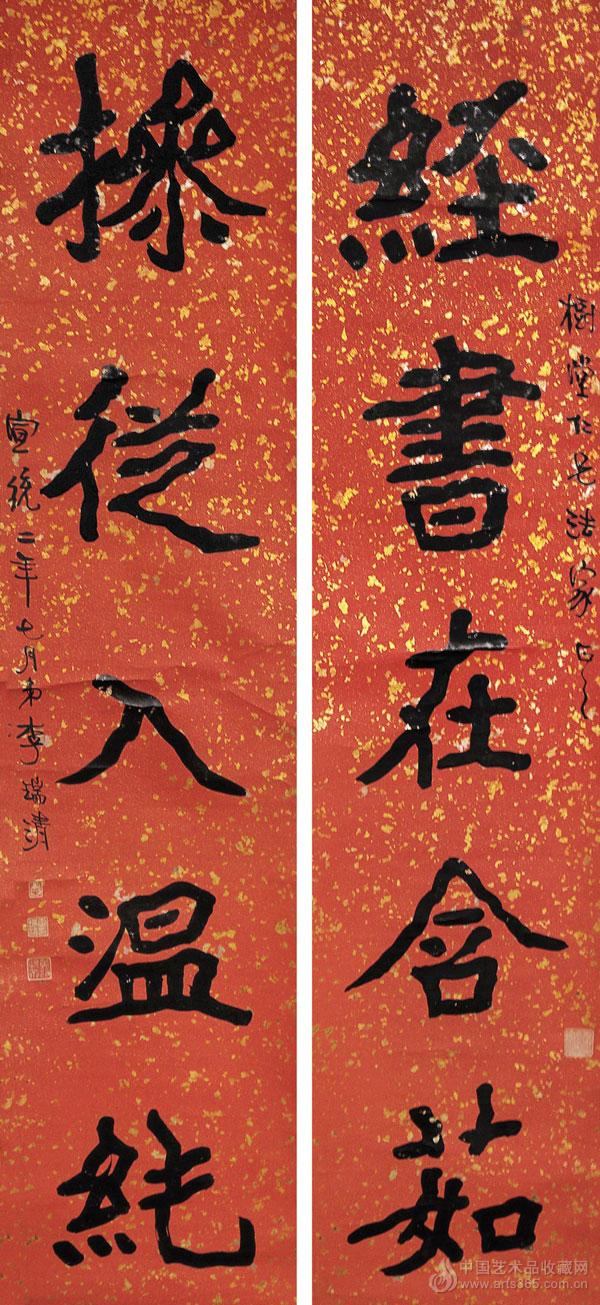 樹堂仁兄法家正之
經書在含茹
操從入温純
宣統二年七月弟李瑞清
中国艺术品收藏网
www.arts365.com.cn